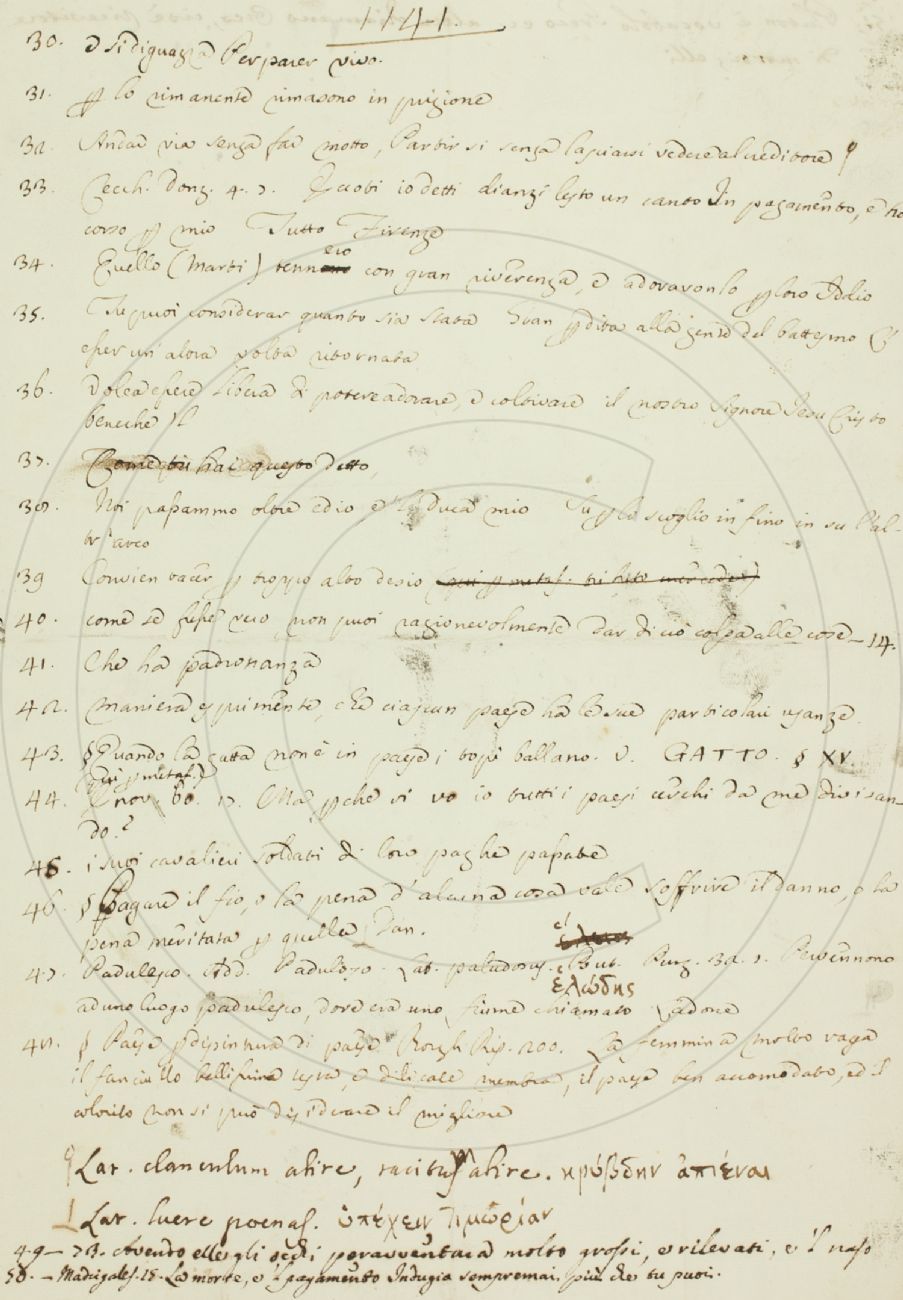 1141.
30. e si diguazza per parer vivo.
31. ꝑ lo rimanente rimasono in prigione
32. Andar via senza far motto, Partirsi senza lasciarsi vedere al creditore
33. Cecch. Donz. 4. 7. Eccoti io detti dianzi lesto un canto In pagamento, e ho
corso ꝑ mio Tutto Firenze
34. Quello (Marti) tennero con gran riverenza, e adoravonlo ꝑ loro Iddio
35. Tu puoi considerar quanto sia stata gran ꝑdita alla gente del battesmo
esser un' altra volta ritornata
36. Volea essere libera di potere adorare, e coltivare il nostro Signore Jesu Cristo
benechè il
37. Come tu hai questo detto,
38. Noi passammo oltre ed io e 'l duca mio Su ꝑ lo scoglio in fino in su l'al-
tr' arco
39 Convien ꝑ troppo alto desio
40. come se fusse reo, non puoi ragionevolmente dar di ciò colpa alle cose – 14.
41. Che ha padronanza
42. maniera esprimente, che ciascun paese ha le sue particolari usanze.
43. § Quando la gatta non è in paese i topi ballano. V. GATTO. § XV.
(qui ꝑ metaf.)
44. nov. 60. 17. Ma ꝑchè vi vo io tutti i paesi cerchi da me divisan-
do?
45. i suoi cavalieri soldati di loro paghe passate
46. § Pagare il fio, o la pena d' alcuna cosa vale soffrire il danno, o la
pena meritata ꝑ quella Dan.
47. Padulesco. Add. Paduloso. Lat. paludosus. ἑλώδης But. Purg. 32. 1. Pervennono
ad uno luogo padulesco, dove era uno fiume chiamato Ladone
48. § Paese ꝑ dipintura di paese Borgh. Rip. 200. La femmina molto vaga
il fanciullo bellissima testa, e dilicate membra, il paese ben accomodato, ed il
colorito non si può desiderare il migliore
Lat. clanculum abire, tacitus abire. κρύβδην ἀπιέναι
Lat. luere poenas. ὑπέχειν τιμωρίαν
49 – 73. Avendo elle gli occhi peravventura molto grossi, e rilevati, e 'l naso
50. – Madrigales. 15. La morte, e 'l pagamento Indugia sempremai più che tu puoi.